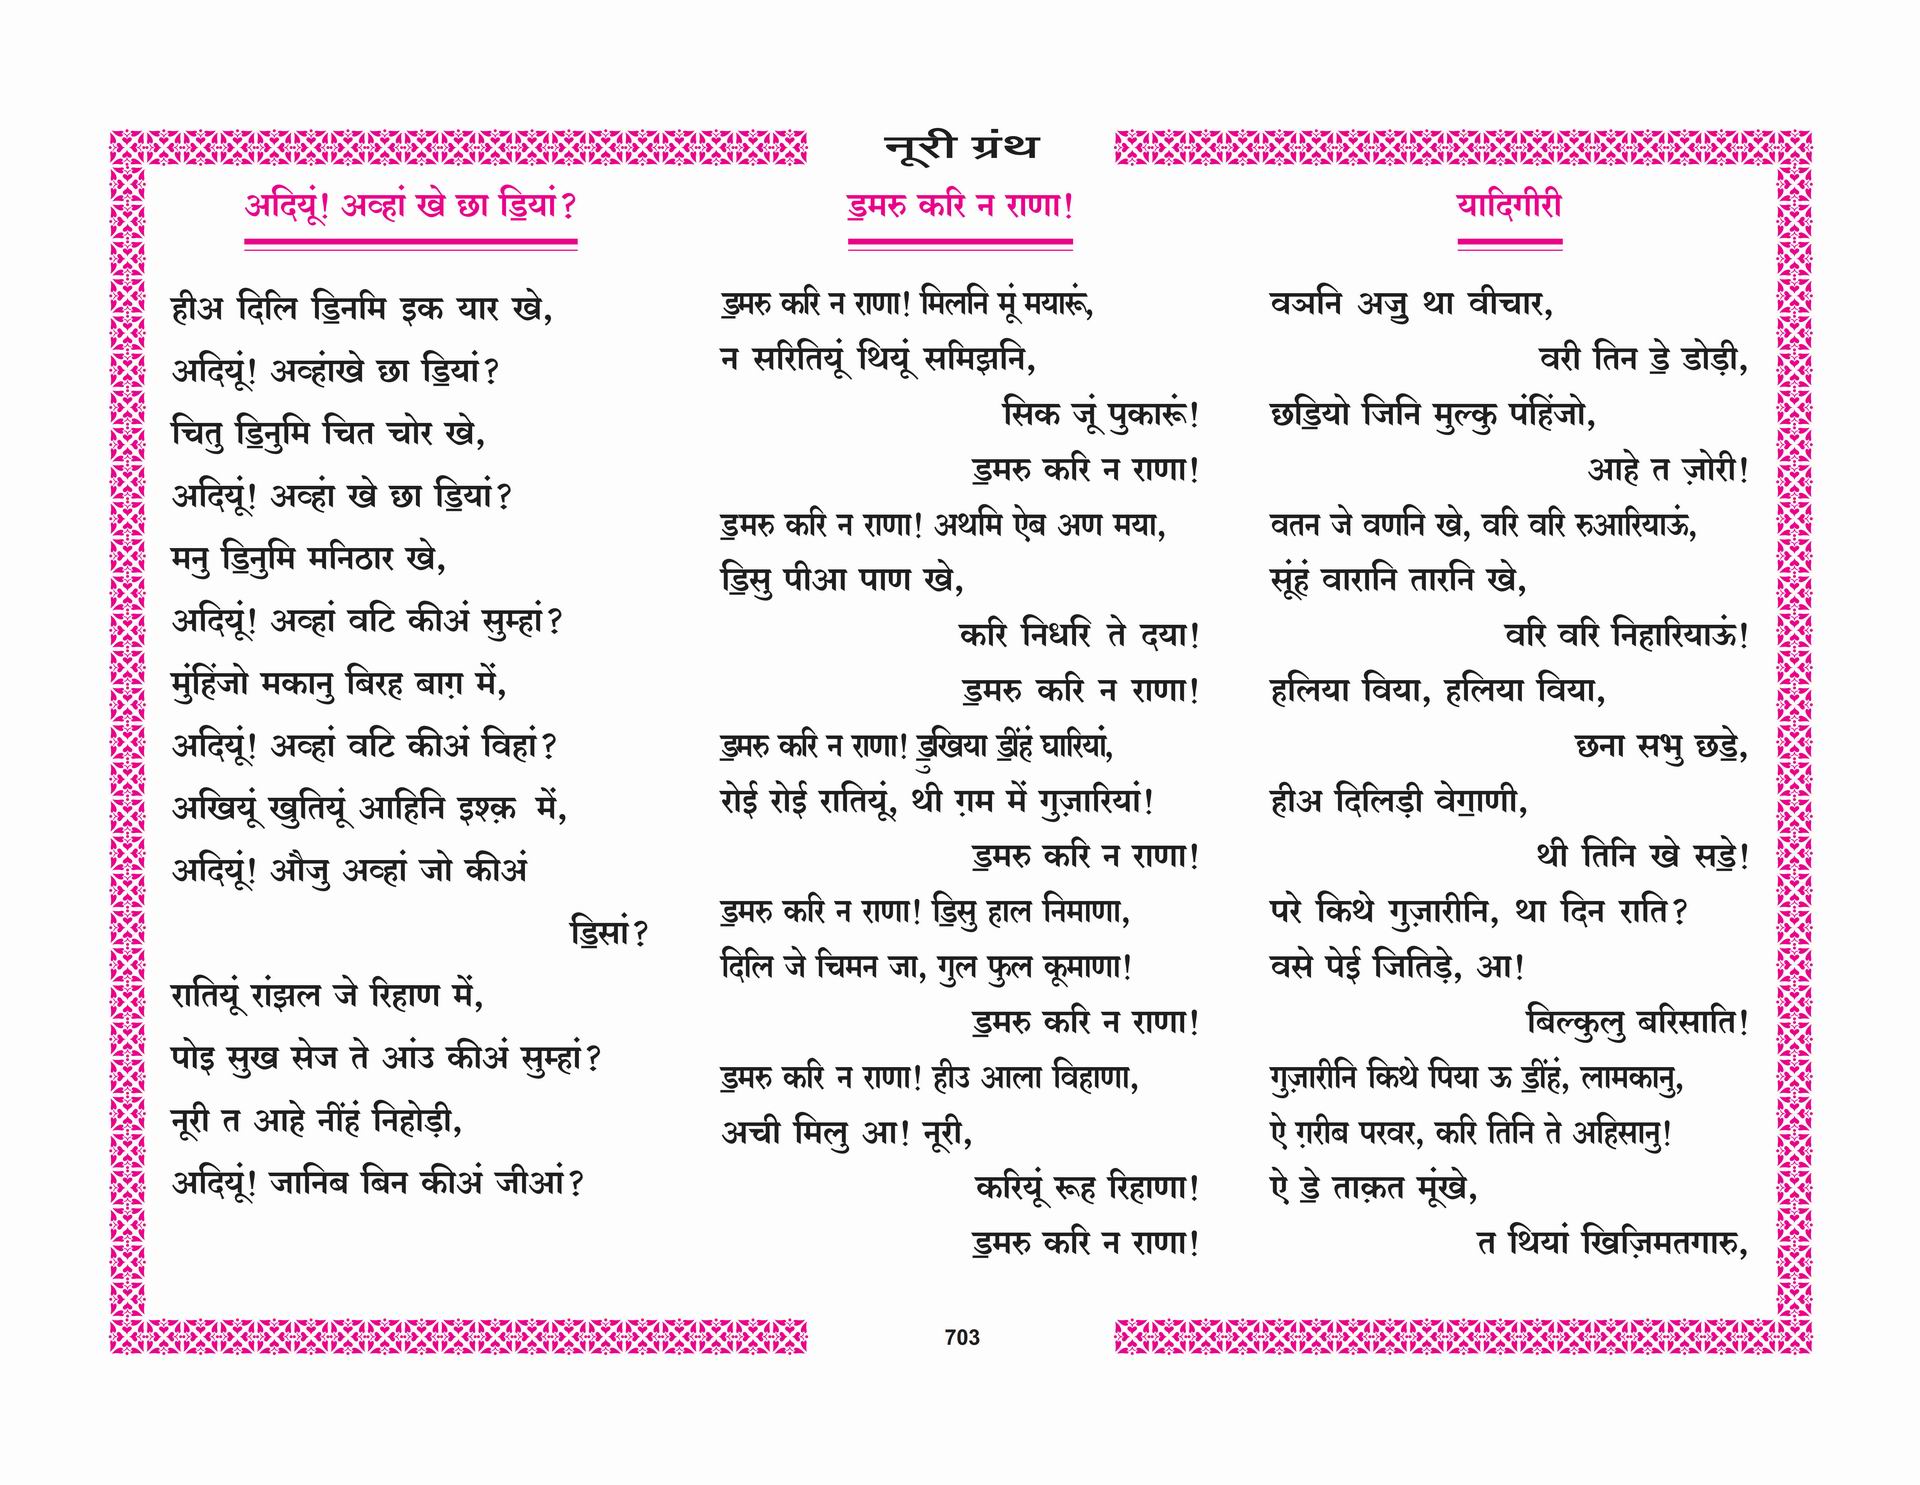 नूरी ग्रंथ
अदियूं! अव्हां खे छा ॾियां?
हीअ दिलि ॾिनमि इक यार खे,
अदियूं! अव्हांखे छा ॾियां?
चितु ॾिनुमि चित चोर खे,
अदियूं! अव्हां खे छा ॾियां?
मनु ॾिनुमि मनिठार खे,
अदियूं! अव्हां वटि कीअं सुम्हां?
मुंहिंजो मकानु बिरह बाग़ में,
अदियूं! अव्हां वटि कीअं विहां?
अखियूं खुतियूं आहिनि इश्क़ में,
अदियूं! औजु अव्हां जो कीअं
ॾिसां?
रातियूं रांझल जे रिहाण में,
पोइ सुख सेज ते आंउ कीअं सुम्हां?
नूरी त आहे नींहं निहोड़ी,
अदियूं! जानिब बिन कीअं जीआं?
ॾमरु करि न राणा!
ॾमरु करि न राणा! मिलनि मूं मयारूं,
न सरितियूं थियूं समिझनि,
सिक जूं पुकारूं!
ॾमरु करि न राणा!
ॾमरु करि न राणा! अथमि ऐब अण मया,
ॾिसु पीआ पाण खे,
करि निधरि ते दया!
ॾमरु करि न राणा!
ॾमरु करि न राणा! ॾुखिया ॾींहं घारियां,
रोई रोई रातियूं, थी ग़म में गुज़ारियां!
ॾमरु करि न राणा!
ॾमरु करि न राणा! ॾिसु हाल निमाणा,
दिलि जे चिमन जा, गुल फुल कूमाणा!
ॾमरु करि न राणा!
ॾमरु करि न राणा! हीउ आला विहाणा,
अची मिलु आ! नूरी,
करियूं रूह रिहाणा!
ॾमरु करि न राणा!
यादिगीरी
वञनि अॼु था वीचार,
वरी तिन ॾे डोड़ी,
छॾियो जिनि मुल्कु पंहिंजो,
आहे त ज़ोरी!
वतन जे वणनि खे, वरि वरि रुआरियाऊं,
सूंहं वारानि तारनि खे,
वरि वरि निहारियाऊं!
हलिया विया, हलिया विया,
छना सभु छॾे,
हीअ दिलिड़ी वेॻाणी,
थी तिनि खे सॾे!
परे किथे गुज़ारीनि, था दिन राति?
वसे पेई जितिड़े, आ!
बिल्कुलु बरिसाति!
गुज़ारीनि किथे पिया ऊ ॾींहं, लामकानु,
ऐ ग़रीब परवर, करि तिनि ते अहिसानु!
ऐ ॾे ताक़त मूंखे,
त थियां खिज़िमतगारु,
703